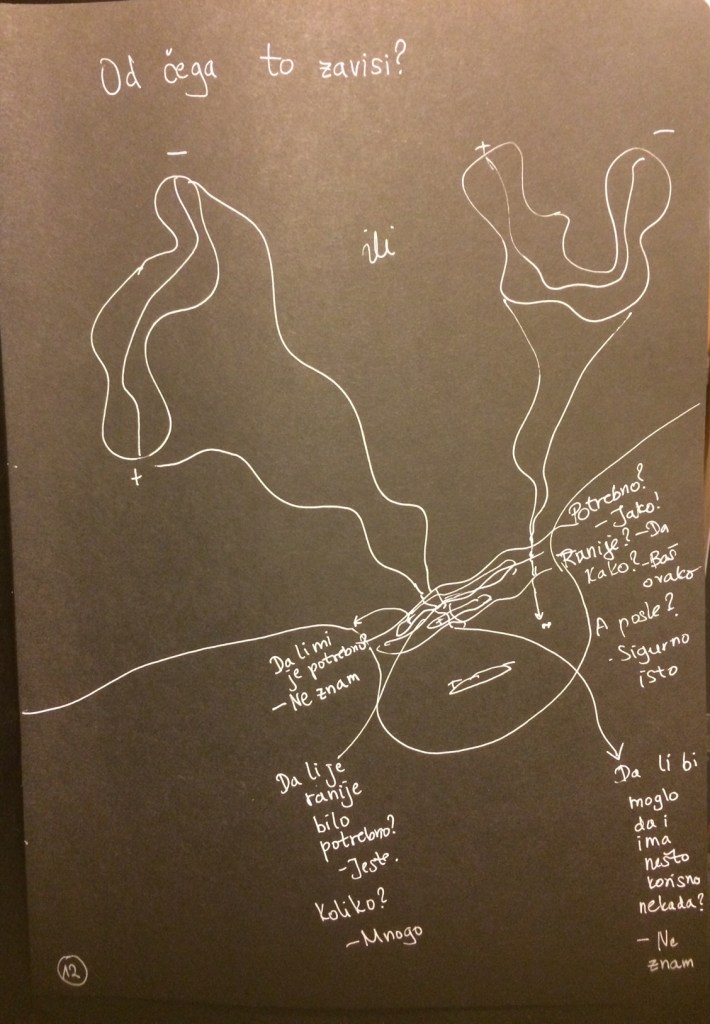 Od čega to zavisi?
−
+
ili
+
−
Potrebno?
- Jako!
Ranije? - Da
Kako? - Baš
ovako
A posle?
- Sigurno
isto
Da li mi
je potrebno?
- Ne znam
Da li je
ranije
bilo
potrebno?
- Jeste.
Koliko?
- Mnogo
Da li bi
moglo
da i
ima
nešto
korisno
nekada?
- Ne
znam
12